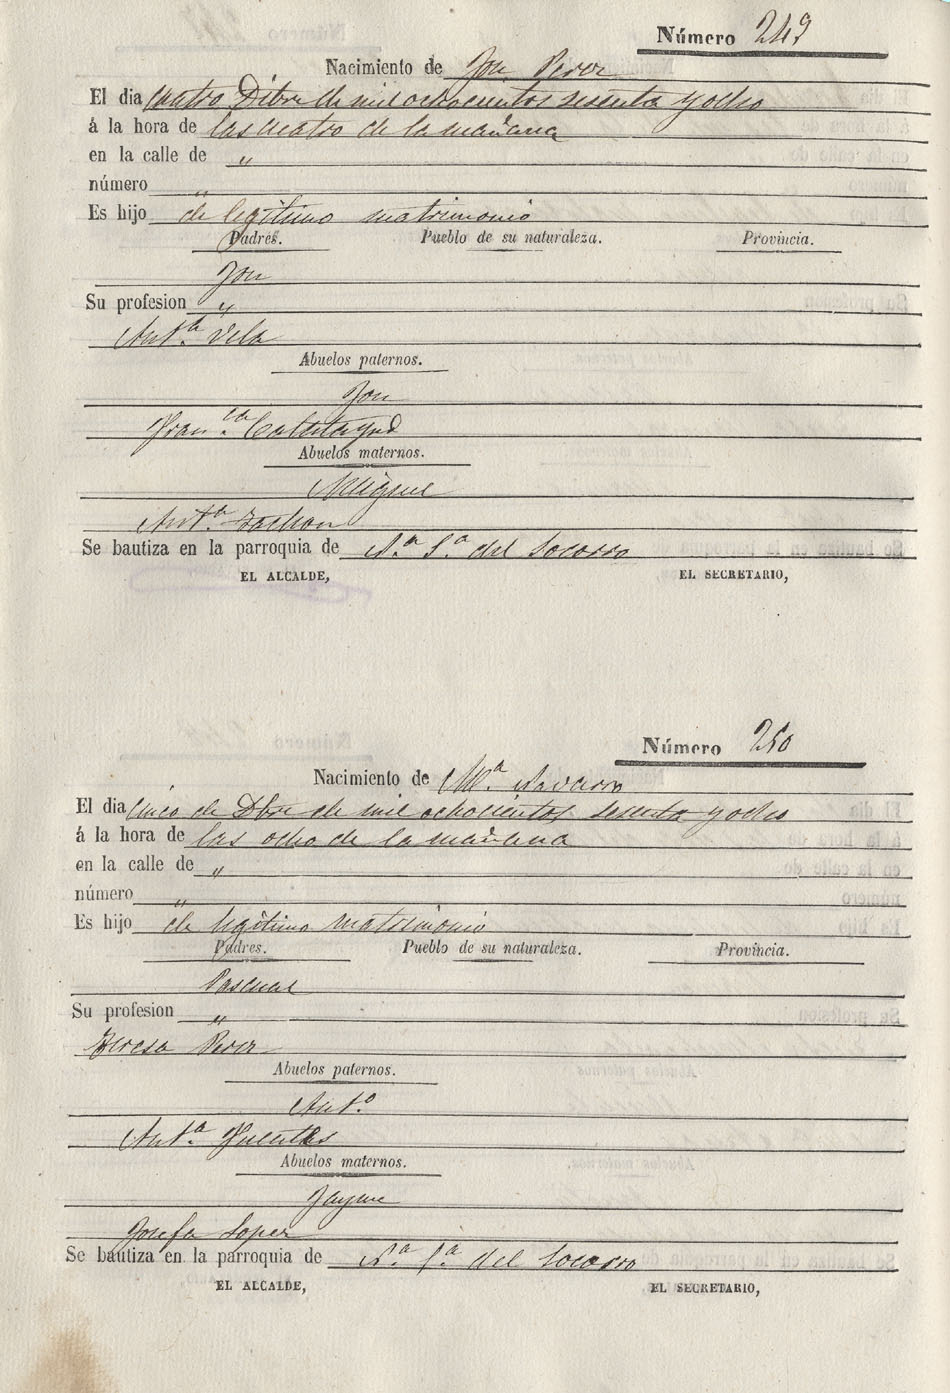 Número 249
Nacimiento de Jon Perez
El dia Cuatro Dibre de mil ochocientos sesenta y ocho
á la hora de las cuatro de la mañana
en la calle de "
número "
Es hijo de legítimo matrimonio
Padres. Pueblo de su naturaleza. Provincia.
Jon
Su profesion "
Ant.ª Vela
Abuelos paternos.
Jon
Fran.ca Calatayud
Abuelos maternos.
Miguel
Ant.ª
Se bautiza en la parroquia de N.ª S.ª del Socorro
EL ALCALDE, EL SECRETARIO,
Número 250
Nacimiento de M.ª Navarro
El dia Cinco de Dbre de mil ochocientos sesenta y ocho
á la hora de las ocho de la mañana
en la calle de "
número "
Es hijo de legítimo matrimonio
Padres. Pueblo de su naturaleza. Provincia.
Pascual
Su profesion "
Teresa Perez
Abuelos paternos.
Ant.º
Ant.ª Fuentes
Abuelos maternos.
Jayme
Josefa Lopez
Se bautiza en la parroquia de N.ª S.ª del Socorro
EL ALCALDE, EL SECRETARIO,